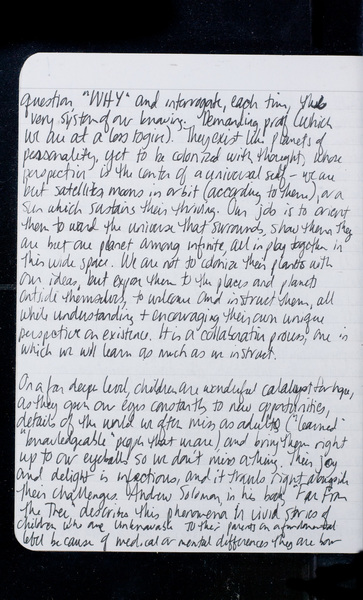 question "WHY" and interrogate, each time, the
very system of our knowing. Demanding proof (which
we are at a loss to give). They exist like planets of
personality, yet to be colonized with thought, whose
perspective is the center of a universal self - we are
but satellites, moons in orbit (according to them), or a
sun which sustains their thriving. Our job is to orient
them toward the universe that surrounds, show them they
are but one planet among infinite, all in play together in
this wide space. We are not to colonize their planets with
our ideas, but expose them to the places and planets
outside themselves, to welcome and instruct them, all
while understanding + encouraging their own unique
perspective on existence. It is a collaborative process, one in
which we will learn as much as we instruct.
On a far deeper level, children are wonderful catalysts for hope,
as they open our eyes constantly to new opportunities,
details of the world we often miss as adults ("learned"
"knowledgeable" people that we are) and bring them right
up to our eyeballs so we don't miss a thing. Their joy
and delight is infectious, and it travels right alongside
their challenges. Andrew Solomon, in his book Far From
the Tree describes this phenomena in vivid stories of
children who are unknowable to their parents on a fundamental
level because of medical or mental differences they are born